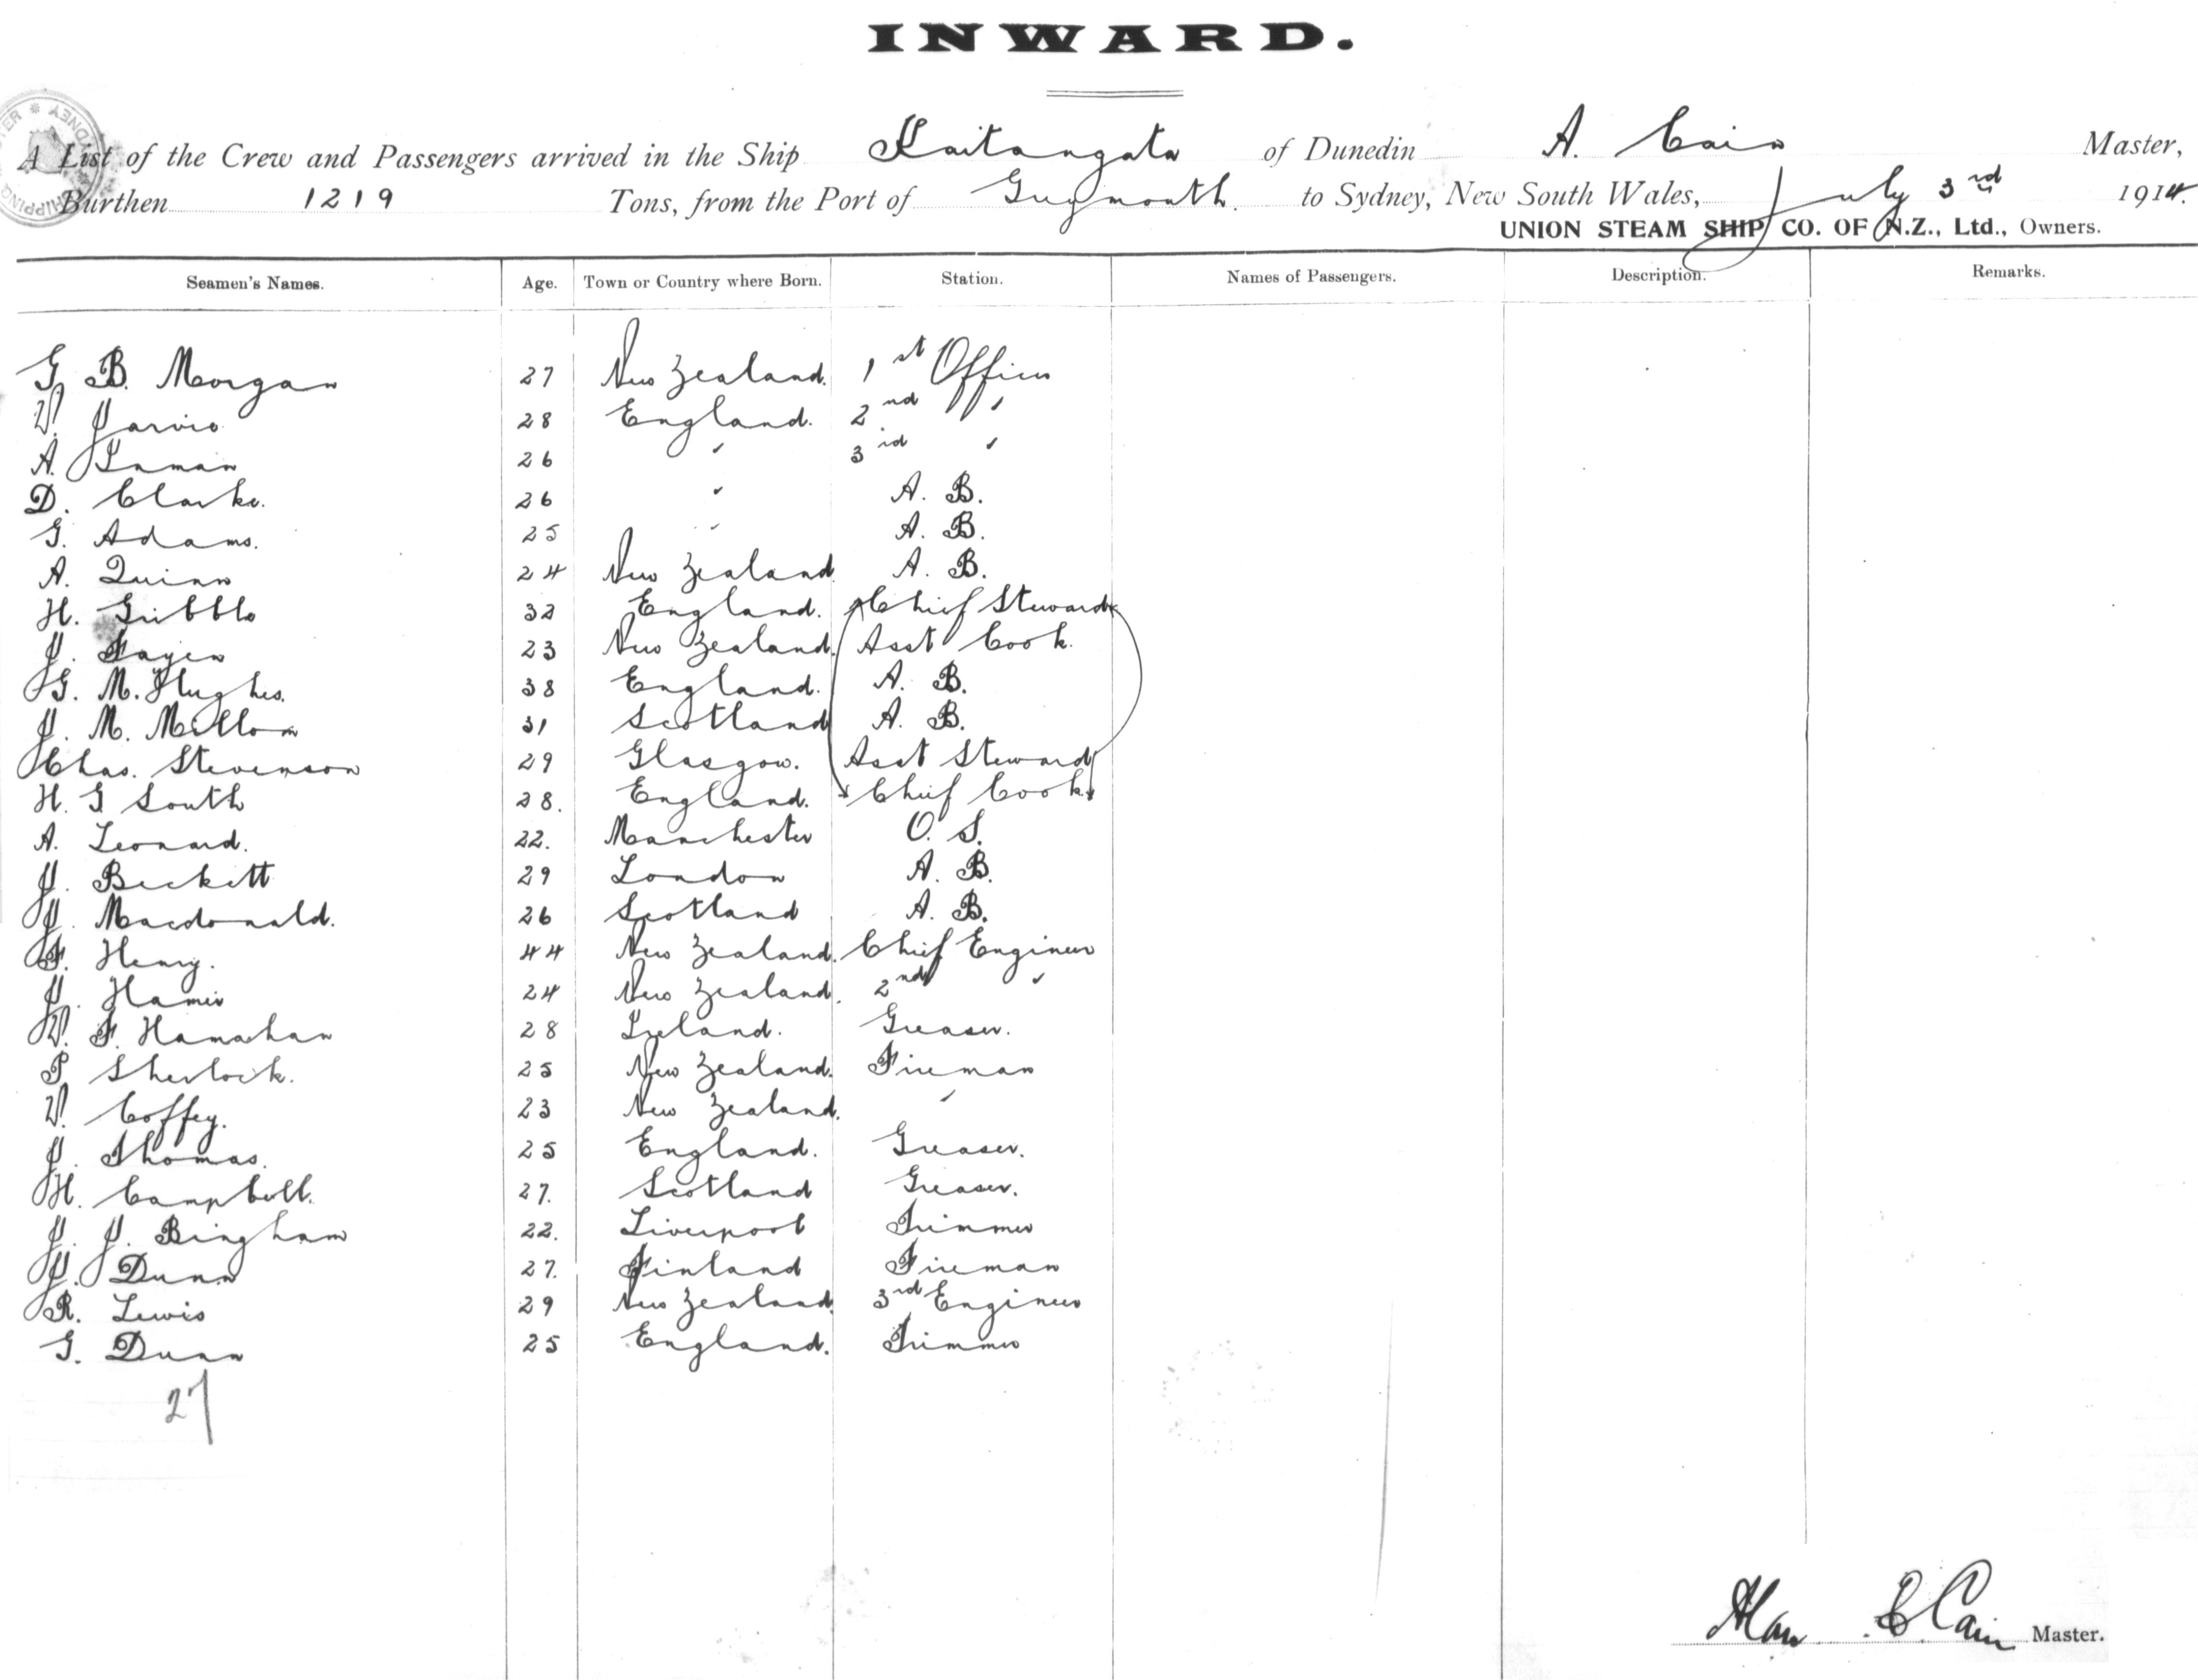 INWARD.
A List of the Crew and Passengers arrived in the Ship Kaitangata of Dunedin A. Cain Master,
Burthen 1219 Tons, from the Port of Greymouth. to Sydney, New South Wales, July 3rd 1914.
UNION STEAM SHIP CO. OF N.Z., Ltd., Owners.
Seamen's Names. Age. Town or Country where Born. Station. Names of Passengers. Description. Remarks.
G. B. Morgan 27 New Zealand. 1st Officer
W. Jarvis 28 England. 2nd "
A. Inman 26 " 3rd "
D. Clarke. 26 " A. B.
G. Adams. 25 " A. B.
A. Quinn 24 New Zealand A. B.
H. Gribble 32 England. Chief Steward
J. Fagen 23 New Zealand. Asst Cook.
G. M. Hughes. 38 England. A. B.
J. M. Millom 31 Scotland A. B.
Chas. Stevenson 29 Glasgow. Asst Steward
H. G South 28. England. Chief Cook
A. Leonard. 22. Manchester O. S.
J. Beckett 29 London A. B.
J. Macdonald. 26 Scotland A. B.
F. Henry. 44 New Zealand. Chief Engineer
J. Hamer 24 New Zealand. 2nd "
W. F. Hanrahan 28 Ireland. Greaser.
P Sherlock. 25 New Zealand. Fireman
W. Coffey. 23 New Zealand. "
J. Thomas. 25 England. Greaser.
H. Campbell. 27. Scotland Greaser.
J. J. Bingham 22. Liverpool Trimmer
J. Dunn 27. Finland Fireman
R. Lewis 29 New Zealand 3rd Engineer
G. Dunn 25 England. Trimmer
27
Alan C Cain Master.